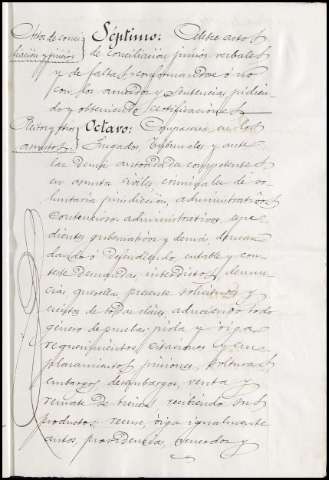 Actos de conci-
liación y juicios
Séptimo: Celebre actos
de conciliación, juicios verbales
y de faltas, conformándose ó no
con los acuerdos y sentencias pidien-
do y obteniendo certificaciones
Pleitos y otros
asuntos
Octavo: Comparezca en los
Juzgados, Tribunales y ante
las demás autoridades competentes
en asuntos civiles, criminales de vo-
luntaria jurisdicción, administrativos
contencioso administrativos, espe-
dientes gubernativos y demás deman-
dando ó defendiendo, entable y con-
teste demandas, interdictos, denun-
cias, querellas presente solicitudes y
escritos de todas clases, aduciendo todo
género de pruebas pida y oiga
requerimientos, citaciones y em-
plazamientos, prisiones, solturas
embargos, desembargos, venta y
remate de bienes recibiendo sus
productos, recuse, oiga igualmente
autos, providencias, acuerdos y